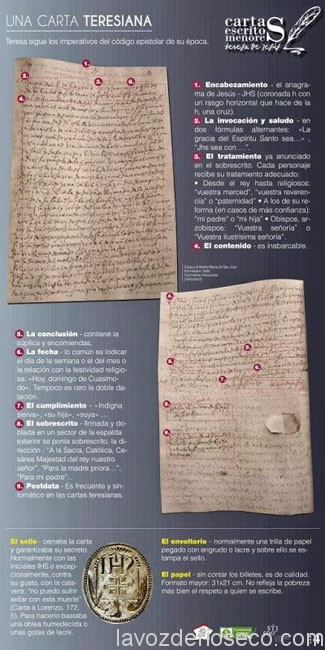 UNA CARTA TERESIANA
Teresa sigue los imperativos del código epistolar de su época.
cartas
escritos
menores
teresa de jesús
1. Encabezamiento - el anagra-
ma de Jesús - JHS (coronada h con
un rasgo horizontal que hace de la
h, una cruz).
2. La invocación y saludo - en
dos fórmulas alternantes: «La
gracia del Espíritu Santo sea...» -
"Jhs sea con ...".
3. El tratamiento ya anunciado
en el sobrescrito. Cada personaje
recibe su tratamiento adecuado:
• Desde el rey hasta religiosos:
"vuestra merced", "vuestra reveren-
cia" o "paternidad" • A los de su re-
forma (en casos de más confianza):
"mi padre" o "mi hija" • Obispos, ar-
zobispos: "Vuestra señoría" o
"Vuestra ilustrísima señoría".
4. El contenido - es inabarcable.
1.
2.
3.
6.
4.
5. La conclusión - contiene la
súplica y encomiendas.
6. La fecha - lo común es indicar
el día de la semana o el del mes o
la relación con la festividad religio-
sa: «Hoy, domingo de Cuasimo-
do». Tampoco es raro la doble da-
tación.
7. El cumplimiento - «Indigna
sierva», «su hija», «suya» ...
8. El sobrescrito - firmada y do-
blada en un sector de la espalda
exterior se ponía sobrescrito, la di-
rección : "A la Sacra, Católica, Ce-
sárea Majestad del rey nuestro
señor", "Para la madre priora...",
"Para mi padre"...
9. Postdata - Es frecuente y sin-
tomático en las cartas teresianas.
4.
5.
3.
6.
7.
8.
9.
El sello - cerraba la carta
y garantizaba su secreto.
Normalmente con las
iniciales IHS o excep-
cionalmente, contra
su gusto, con la cala-
vera: "no puedo sufrir
sellar con esta muerte"
(Carta a Lorenzo, 172,
5). Para hacerlo bastaba
una oblea humedecida o
unas gotas de lacre.
El envoltorio - normalmente una trilla de papel
pegado con engrudo o lacre y sobre ello se es-
tampa el sello.
El papel - sin contar los billetes, es de calidad.
Formato mayor: 31x21 cm. No refleja la pobreza
más bien el respeto a quien se escribe.
www.lavozdelioseco.com